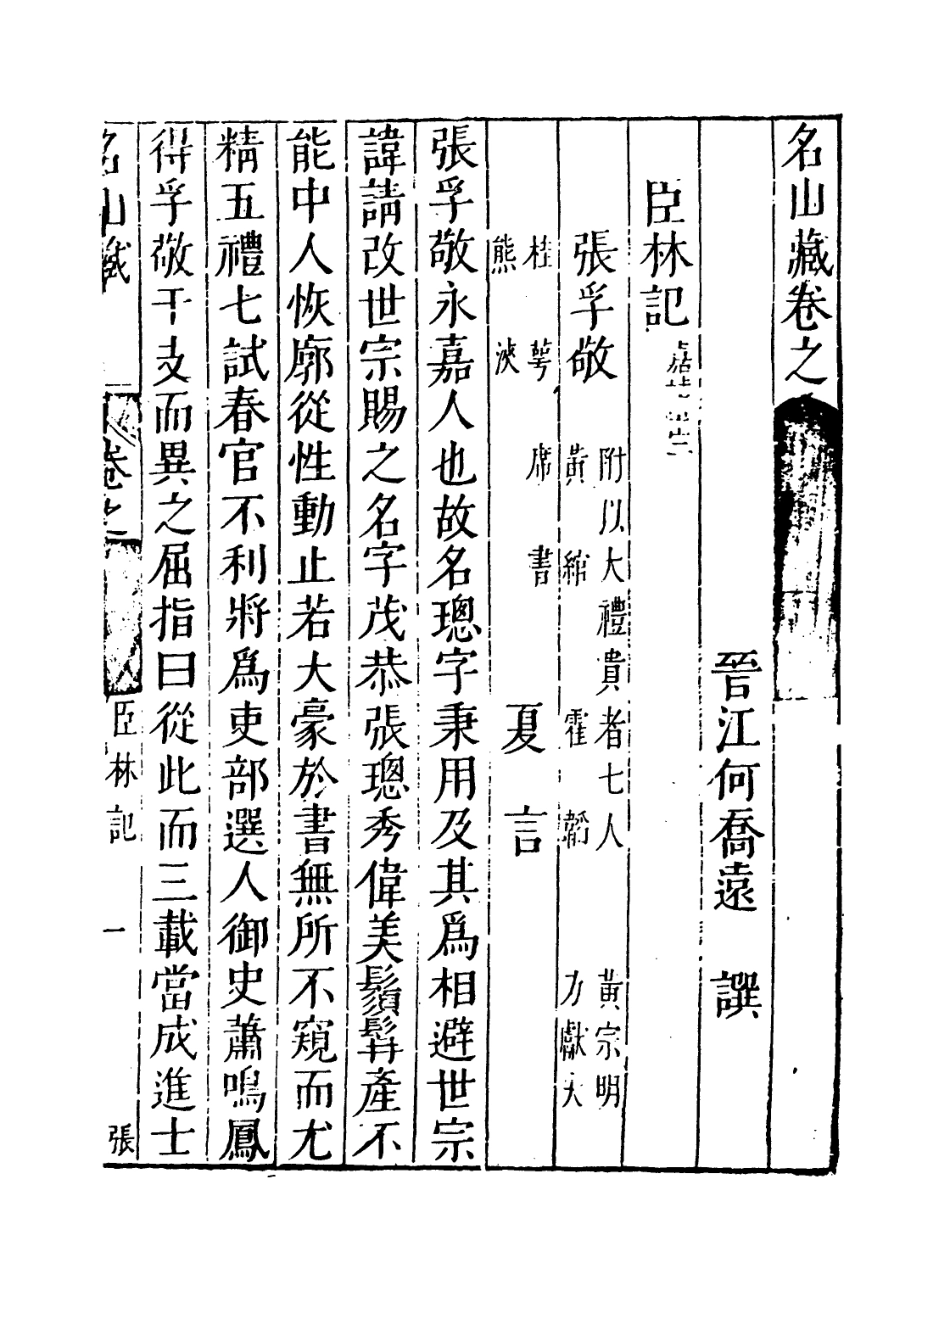 名山藏卷之
晉江何喬遠 譔
臣林記
張孚敬 附以大禮貴者七人 黃宗明
黃綰 霍韜 方獻夫
桂萼 席書
熊浹 夏言
張孚敬永嘉人也故名璁字秉用及其爲相避世宗
諱請改世宗賜之名字茂恭張璁秀偉美鬚髯產不
能中人恢廓從性動止若大豪於書無所不窺而尤
精五禮七試春官不利將爲吏部選人御史蕭鳴鳳
得孚敬干支而異之屈指曰從此而三載當成進士
名山藏 卷之 臣林記 一 張